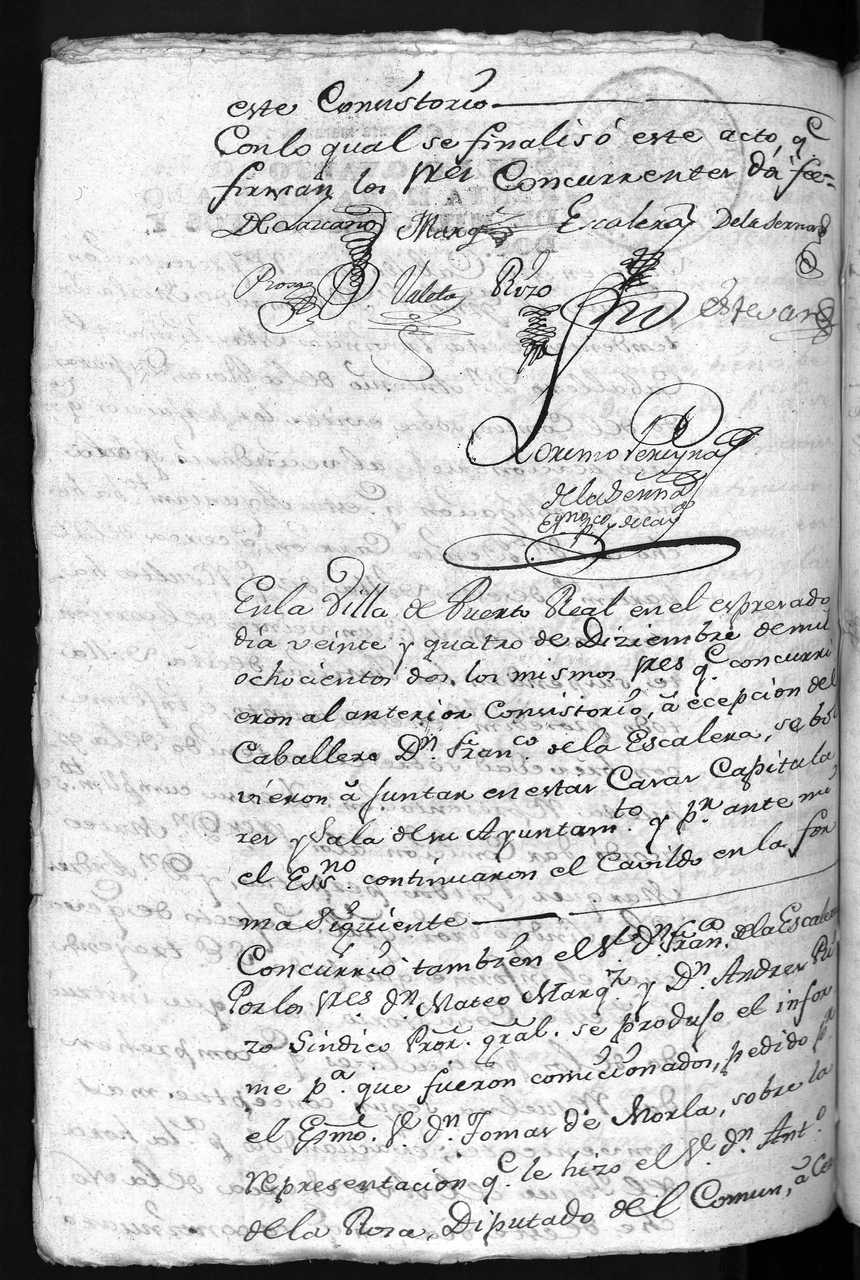 este Consistorio
Con lo qual se finalisó este acto, q.e
firman los Sres Concurrentes dá fee=
Marq.z Escalera De la Serna
Rosa Valota Rizo Estevan
Lorenzo Pereyna
de la Senna
Ess.no pp.co y de cav.do
En la Villa de Puerto Real en el espresado
día veinte y quatro de Diziembre de mil
ochocientos dos, los mismos Sres q.e concurri
eron al anterior Consistorio, á ecepcion del
Caballero D.n Fran.co de la Escalera, se bol
vieron á juntar en estas Casas Capitula
res y Sala de su Ayuntam.to y p.r ante mi
el Ess.no continuaron el Cavildo en la for
ma Siguiente
Concurrió tambien el S.r d.n Fran.co de la Escalera
Por los Sres d.n Mateo Marq.z y D.n Andres Ri
zo Sindico Pror. gral. se produjo el infor
me p.a que fueron comicionados, pedido p.r
el Exmo. S.r d.n Tomas de Morla, sobre la
representacion q.e le hizo el S.r d.n Ant.o
de la Rosa, Diputado del Comun, á